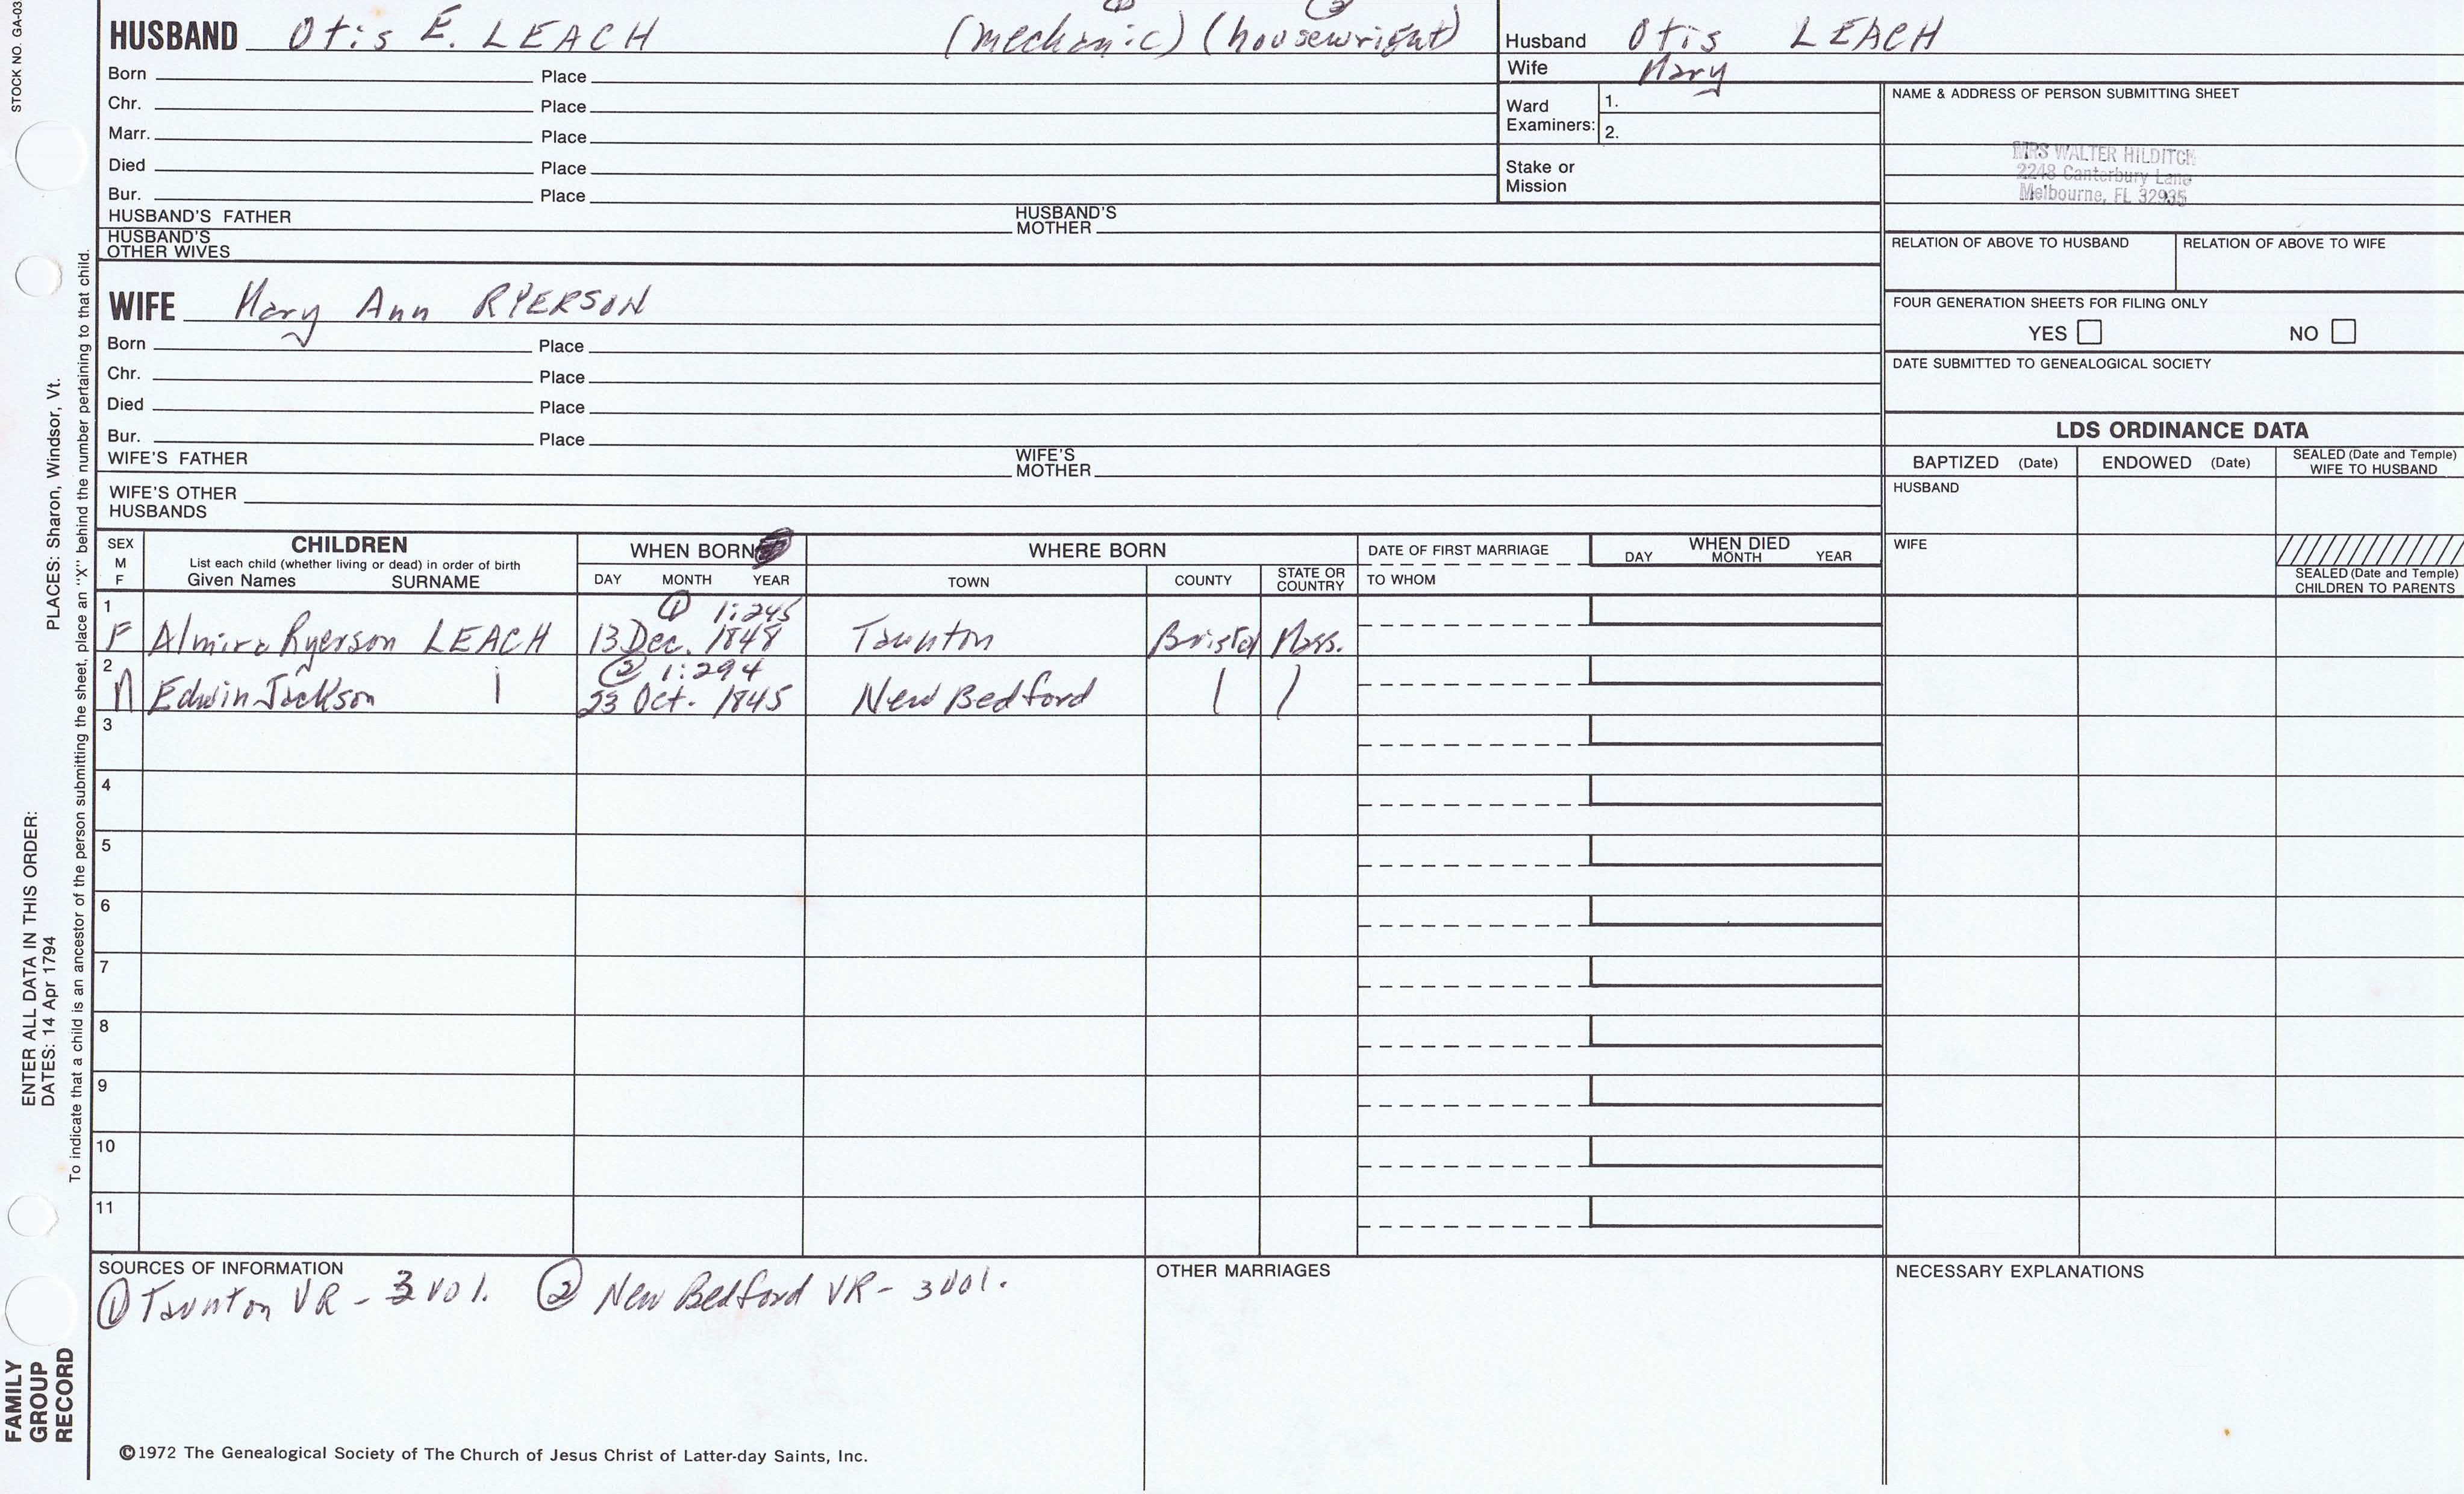 STOCK NO. GA-03
① ②
HUSBAND Otis E. LEACH (mechanic) (housewright)
Husband Otis LEACH
Wife Mary
Born Place
Chr. Place
Marr. Place
Died Place
Bur. Place
HUSBAND'S FATHER HUSBAND'S MOTHER
HUSBAND'S OTHER WIVES
Ward Examiners: 1.
2.
Stake or Mission
NAME & ADDRESS OF PERSON SUBMITTING SHEET
MRS WALTER HILDITCH
2248 Canterbury Lane
Melbourne, FL 32935
RELATION OF ABOVE TO HUSBAND RELATION OF ABOVE TO WIFE
WIFE Mary Ann RYERSON
Born Place
Chr. Place
Died Place
Bur. Place
WIFE'S FATHER WIFE'S MOTHER
WIFE'S OTHER HUSBANDS
FOUR GENERATION SHEETS FOR FILING ONLY
YES NO
DATE SUBMITTED TO GENEALOGICAL SOCIETY
LDS ORDINANCE DATA
BAPTIZED (Date) ENDOWED (Date) SEALED (Date and Temple) WIFE TO HUSBAND
HUSBAND
WIFE
SEALED (Date and Temple) CHILDREN TO PARENTS
SEX M F
CHILDREN
List each child (whether living or dead) in order of birth
Given Names SURNAME
WHEN BORN
DAY MONTH YEAR
WHERE BORN
TOWN COUNTY STATE OR COUNTRY
DATE OF FIRST MARRIAGE
TO WHOM
WHEN DIED
DAY MONTH YEAR
1 ① 1:245
F Almira Ryerson LEACH 13 Dec. 1848 Taunton Bristol Mass.
2 ② 1:294
M Edwin Jackson 23 Oct. 1845 New Bedford
3
4
5
6
7
8
9
10
11
SOURCES OF INFORMATION
① Taunton VR - 3 vol. ② New Bedford VR - 3 vol.
OTHER MARRIAGES
NECESSARY EXPLANATIONS
©1972 The Genealogical Society of The Church of Jesus Christ of Latter-day Saints, Inc.
FAMILY GROUP RECORD
ENTER ALL DATA IN THIS ORDER:
DATES: 14 Apr 1794 PLACES: Sharon, Windsor, Vt.
To indicate that a child is an ancestor of the person submitting the sheet, place an "X" behind the number pertaining to that child.